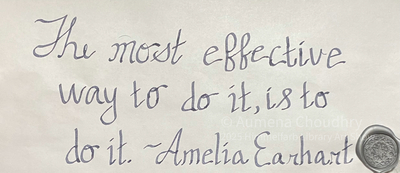 The most effective
way to do it, is to
do it. ~Amelia Earhart
Aumena Choudhry